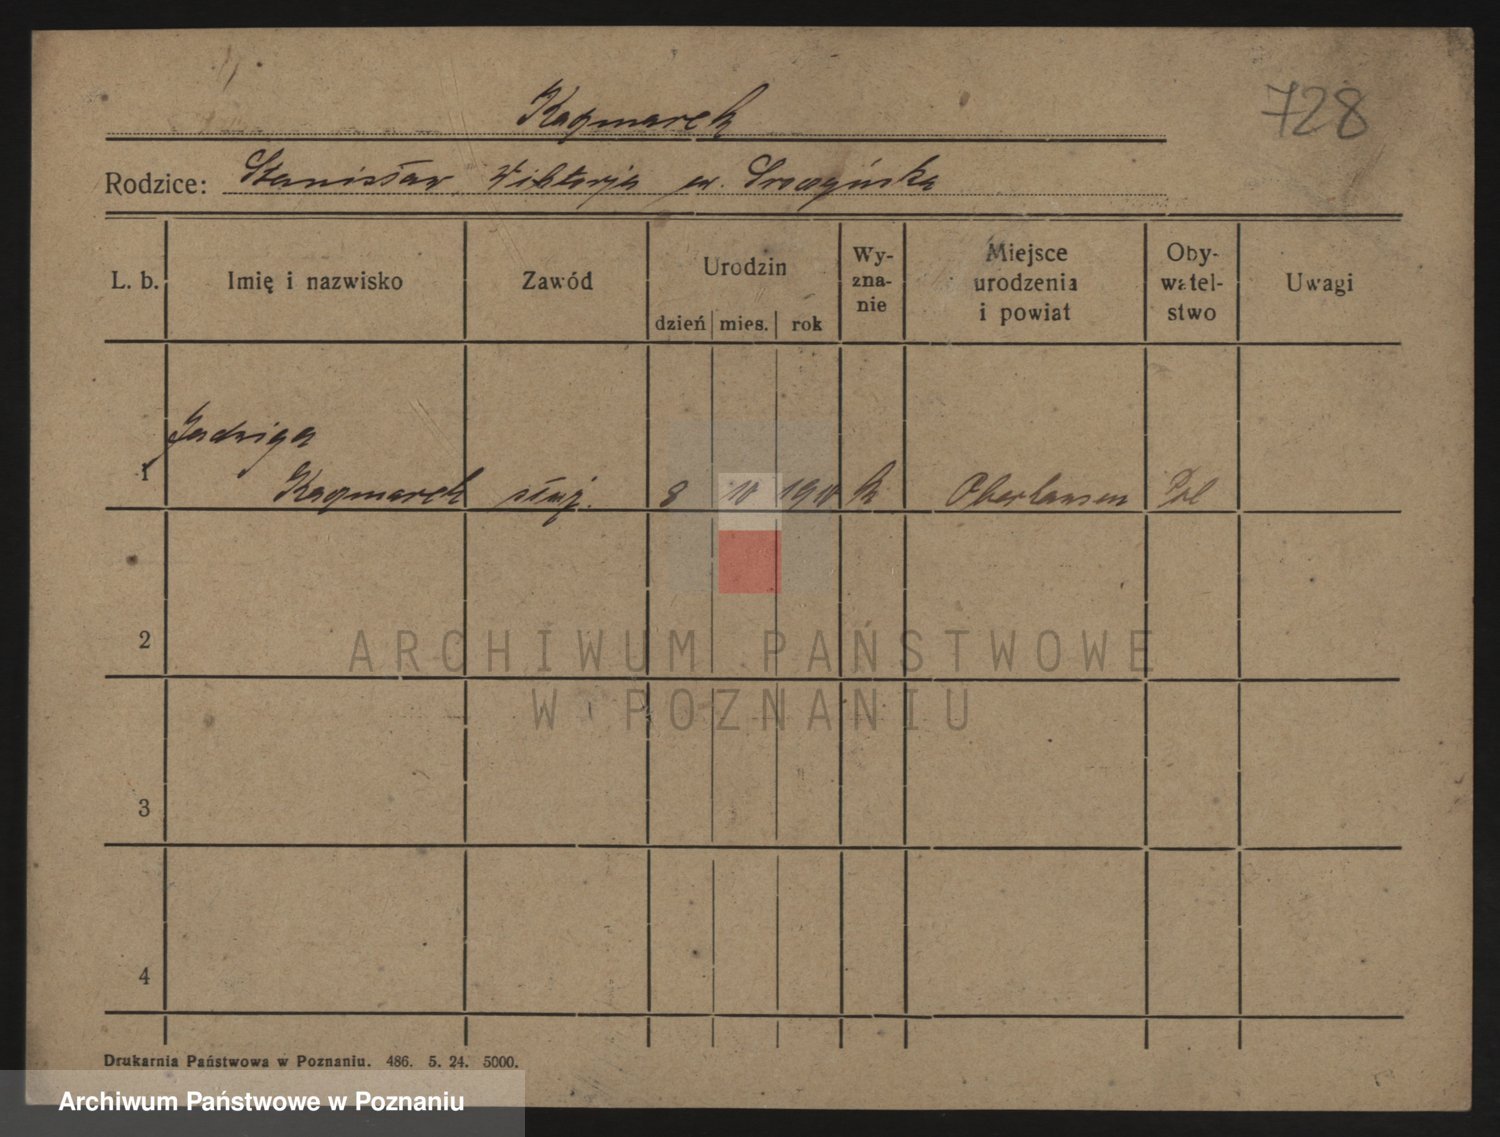 Kaczmarek
728
Rodzice: Stanisław Wiktorja
L. b.
Imię i nazwisko
Zawód
Urodzin
dzień mies. rok
Wy-
zna-
nie
Miejsce
urodzenia
i powiat
Oby-
watel-
stwo
Uwagi
Jadwiga
1 Kaczmarek służ. 8 10 1910 k Oberhausen Pol
2
3
4
ARCHIWUM PAŃSTWOWE
W POZNANIU
Drukarnia Państwowa w Poznaniu. 486. 5. 24. 5000.
Archiwum Państwowe w Poznaniu